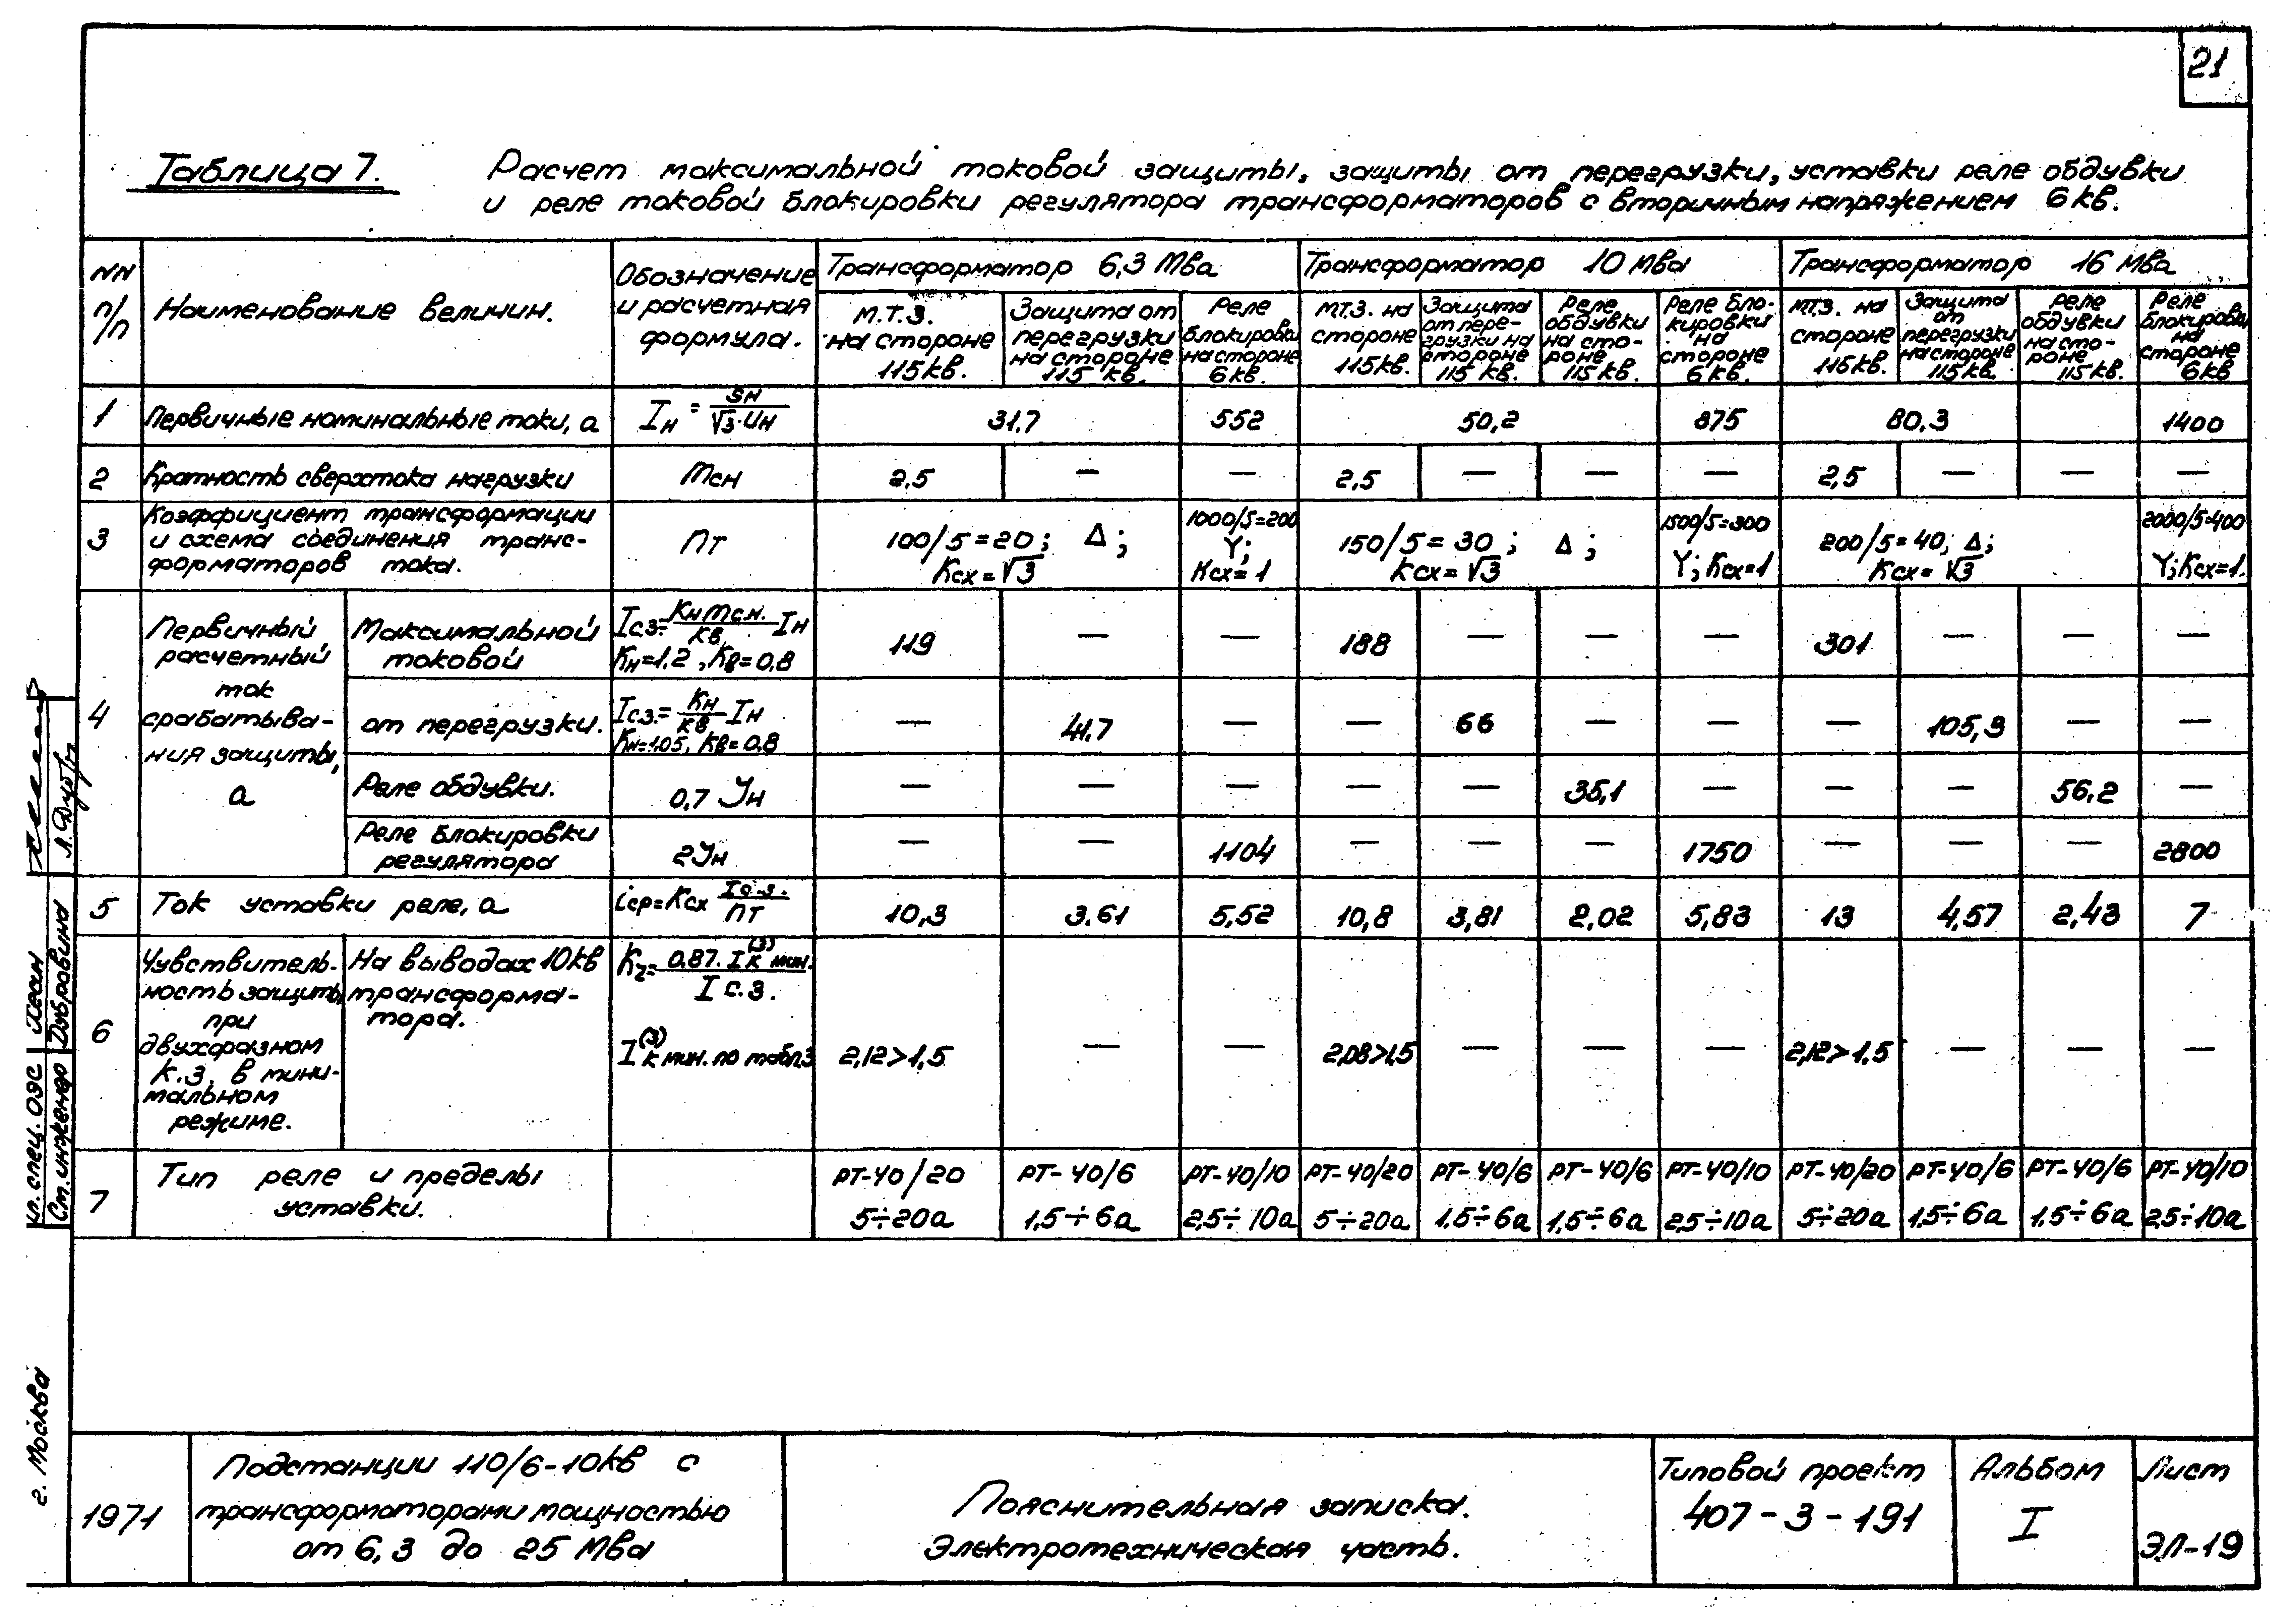 21
Таблица 7.
Расчет максимальной токовой защиты, защиты от перегрузки, уставки реле обдувки
и реле токовой блокировки регулятора трансформаторов с вторичным напряжением 6кв.
NN п/п
Наименование величин.
Обозначение и расчетная формула.
Трансформатор 6,3 Мва
Трансформатор 10 Мва
Трансформатор 16 Мва
М.Т.З. на стороне 115кв.
Защита от перегрузки на стороне 115 кв.
Реле блокировки на стороне 6кв.
МТЗ. на стороне 115кв.
Защита от перегрузки на стороне 115 кв.
Реле обдувки на стороне 115кв.
Реле блокировки на стороне 6кв.
МТЗ. на стороне 115кв.
Защита от перегрузки на стороне 115кв.
Реле обдувки на стороне 115кв.
Реле блокировки на стороне 6кв
1 Первичные номинальные токи, а Iн = Sн/√3·Uн 31,7 552 50,2 875 80,3 1400
2 Кратность сверхтока нагрузки mсн 2,5 — — 2,5 — — — 2,5 — — —
3 Коэффициент трансформации и схема соединения трансформаторов тока. nт
100/5=20; Δ; Kсх=√3
1000/5=200 Y; Kсх=1
150/5=30; Δ; Kсх=√3
1500/5=300 Y; Kсх=1
200/5=40; Δ; Kсх=√3
2000/5=400 Y; Kсх=1.
4 Первичный расчетный ток срабатывания защиты, а
Максимальной токовой Iсз=Kн mсн./Kв Iн Kн=1.2, Kв=0,8 119 — — 188 — — — 301 — — —
от перегрузки. Iс.з.=Kн/Kв Iн Kн=1,05, Kв=0,8 — 41,7 — — 66 — — — 105,3 — —
Реле обдувки. 0,7 Iн — — — — — 35,1 — — — 56,2 —
Реле блокировки регулятора 2Iн — — 1104 — — — 1750 — — — 2800
5 Ток уставки реле, а iср=Kсх Iс.з./nт 10,3 3,61 5,52 10,8 3,81 2,02 5,83 13 4,57 2,43 7
6 Чувствительность защиты при двухфазном к.з. в минимальном режиме.
На выводах 10кв трансформатора.
Kч=0,87. I(3)к мин./I с.з.
I(3)к мин. по табл.3
2,12>1,5 — — 2,08>1,5 — — — 2,12>1,5 — — —
7 Тип реле и пределы уставки.
РТ-40/20 РТ-40/6 РТ-40/10 РТ-40/20 РТ-40/6 РТ-40/6 РТ-40/10 РТ-40/20 РТ-40/6 РТ-40/6 РТ-40/10
5÷20а 1,5÷6а 2,5÷10а 5÷20а 1,5÷6а 1,5÷6а 2,5÷10а 5÷20а 1,5÷6а 1,5÷6а 2,5÷10а
Гл. спец. ОЭС Хесин
Ст. инженер Добровина
г. Москва
1971
Подстанции 110/6-10кв с
трансформаторами мощностью
от 6,3 до 25 Мва
Пояснительная записка.
Электротехническая часть.
Типовой проект
407-3-191
Альбом
I
Лист
ЭЛ-19